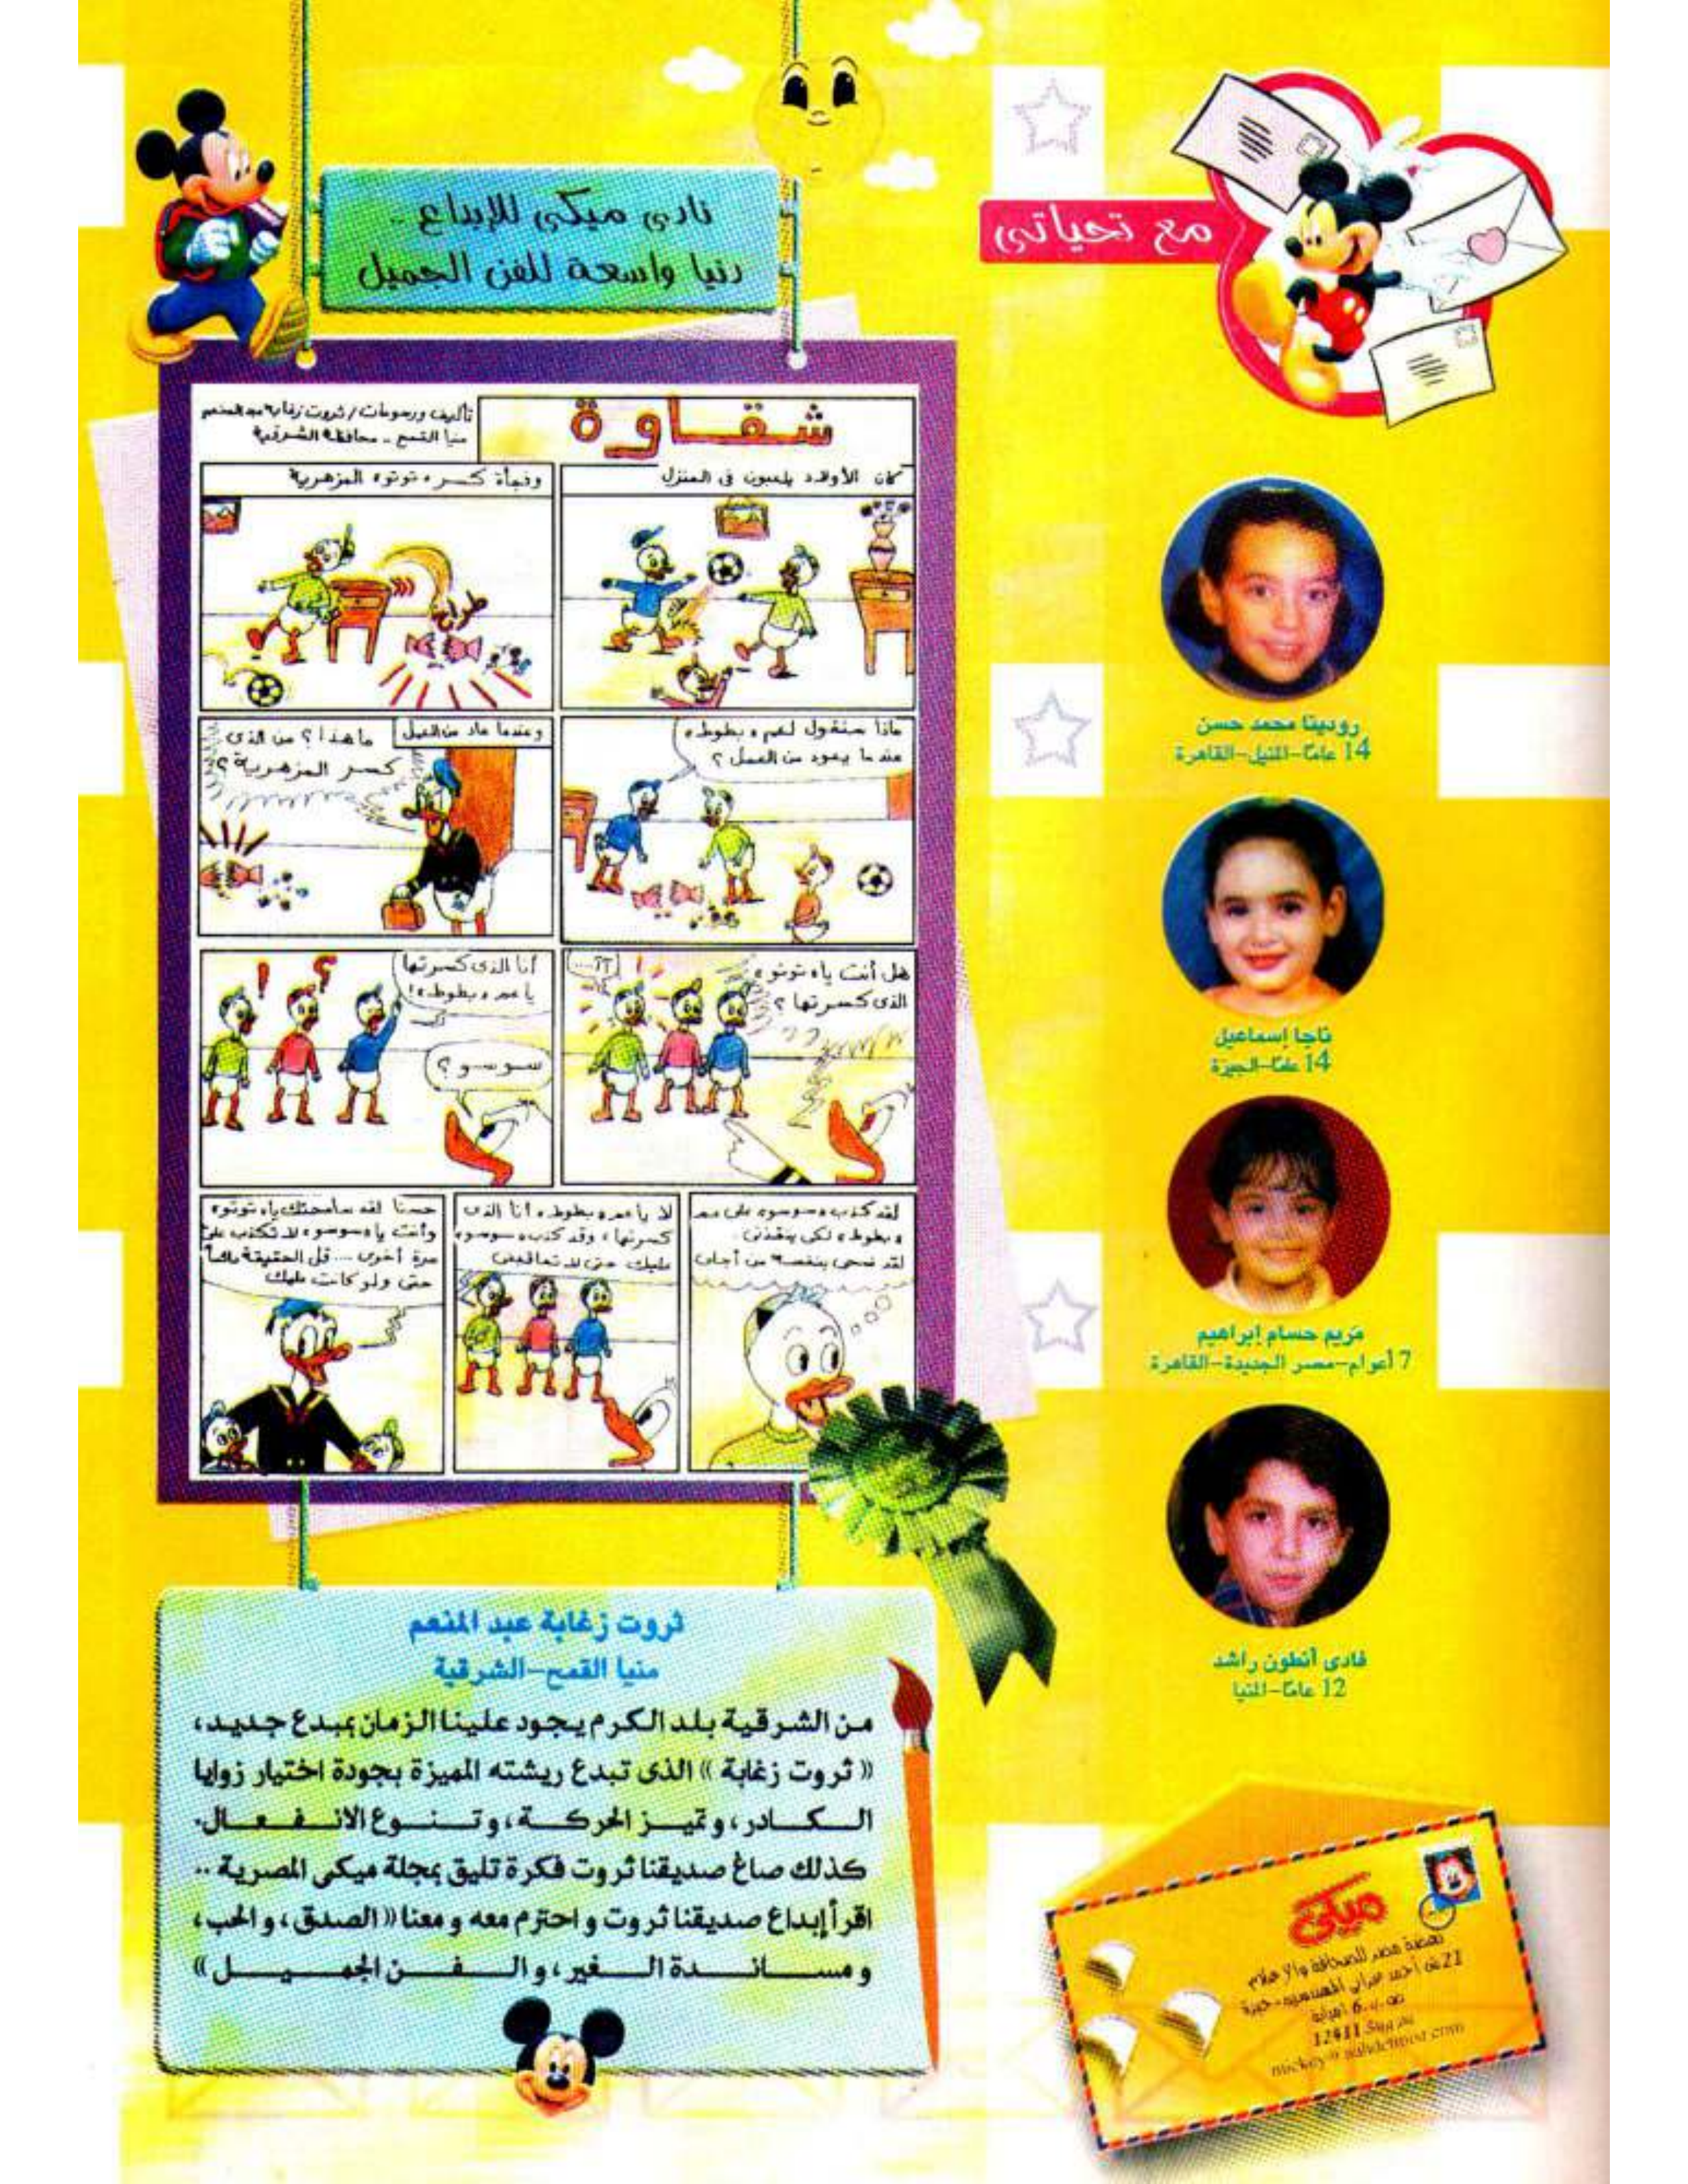 مع تحياتى
نادى ميكى للإبداع ..
دنيا واسعة للفن الجميل
شقاوة
تأليف ورسومات / ثروت زغابة عبد المنعم
منيا القمح .. محافظة الشرقية
كان الأولاد يلعبون فى المنزل
وفجأة كسر «توتو» المزهرية
طراخ
ماذا سنقول لعم «بطوط»
عندما يعود من العمل؟
وعندما عاد من العمل
ما هذا؟ من الذى
كسر المزهرية؟
هل أنت يا«توتو»
الذى كسرتها؟
....؟؟
أنا الذى كسرتها
يا عم «بطوط»!
سوسو؟
لقد كذب «سوسو» على عم
«بطوط» لكى ينقذنى.
لقد ضحى بنفسه من أجلى
لا يا عم «بطوط» أنا الذى
كسرتها، وقد كذب «سوسو»
عليك حتى لا تعاقبنى
حسنا لقد سامحتك يا«توتو»
وأنت يا«سوسو» لا تكذب على
مرة أخرى .... قل الحقيقة دائماً
حتى ولو كانت عليك
رودينا محمد حسن
14 عامًا-المنيل-القاهرة
ناجا إسماعيل
14 عامًا-الجيزة
مريم حسام إبراهيم
7 أعوام-مصر الجديدة-القاهرة
فادى أنطون راشد
12 عامًا-المنيا
ثروت زغابة عبد المنعم
منيا القمح-الشرقية
من الشرقية بلد الكرم يجود علينا الزمان بمبدع جديد،
«ثروت زغابة» الذى تبدع ريشته المميزة بجودة اختيار زوايا
الكادر، وتميز الحركة، وتنوع الانفعال.
كذلك صاغ صديقنا ثروت فكرة تليق بمجلة ميكى المصرية ..
اقرأ إبداع صديقنا ثروت واحترم معه ومعنا «الصدق، والحب،
ومساندة الغير، والفن الجميل»
ميكى
نهضة مصر للصحافة والإعلام
21 ش أحمد عرابى المهندسين-جيزة
ص.ب. 6 امبابة
12411